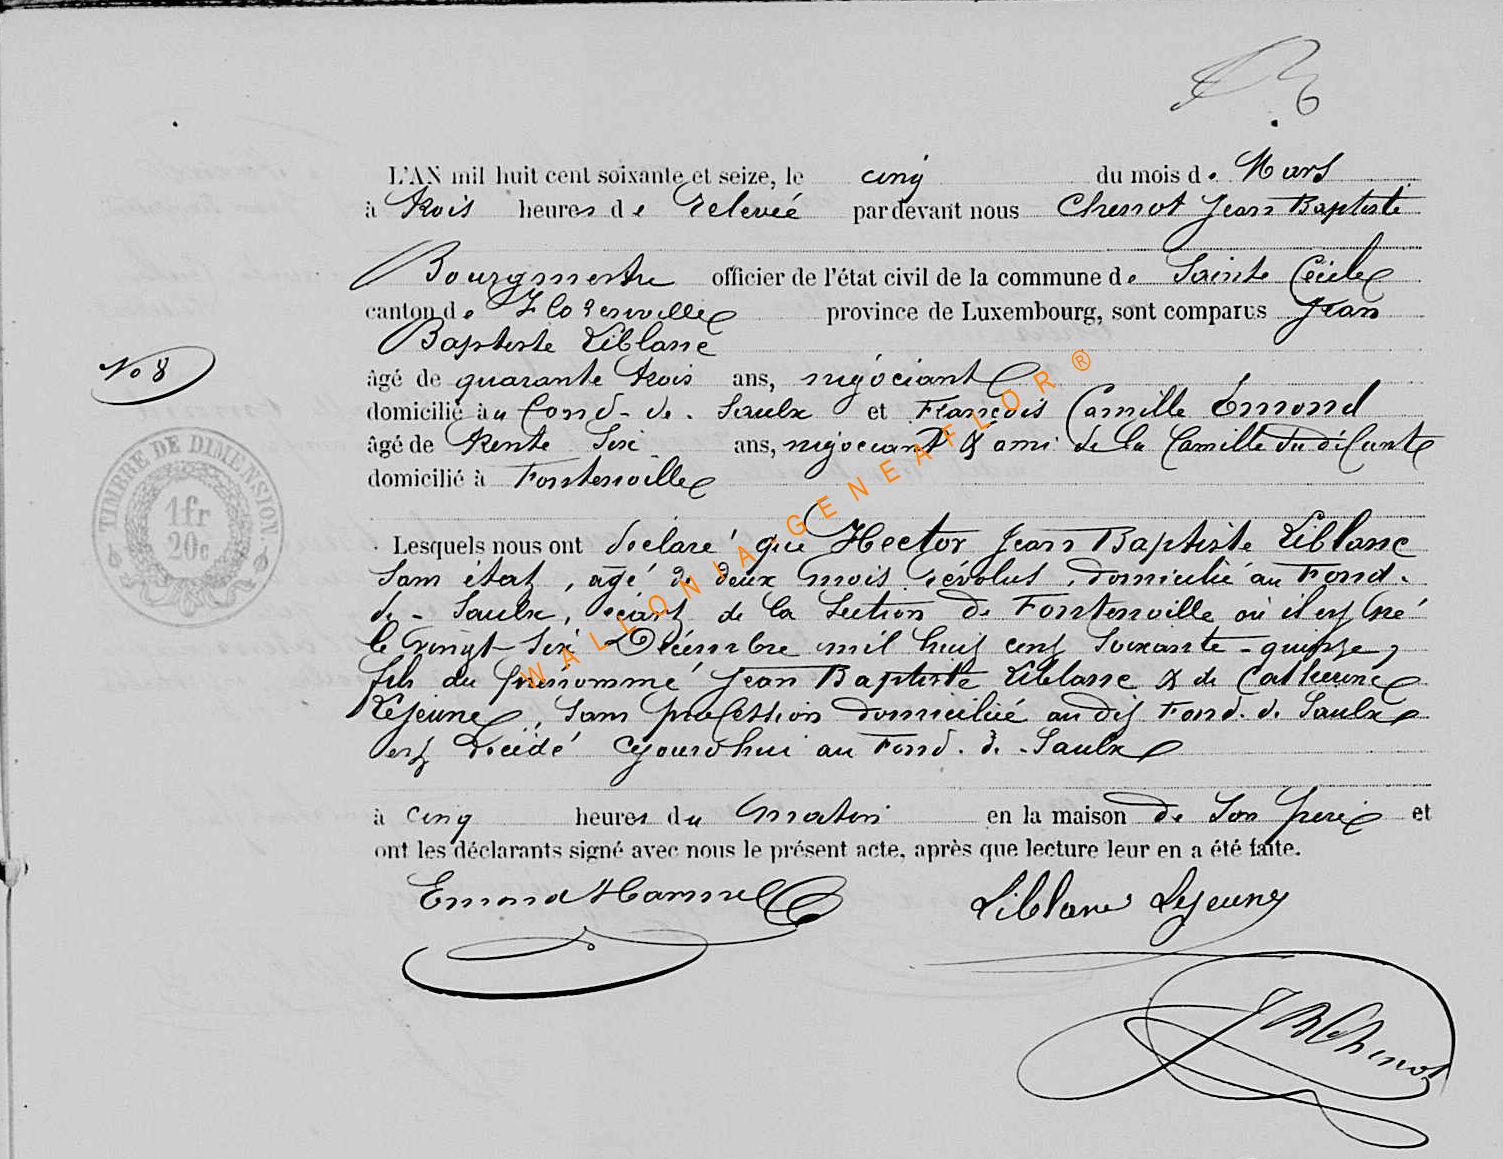 L'AN mil huit cent soixante et seize, le cinq du mois de Mars
à trois heures de relevée pardevant nous Chenot Jean Baptiste
Bourgmestre officier de l'état civil de la commune de Sainte Cécile
canton de Florenville province de Luxembourg, sont comparus Jean
Baptiste Liblanc
No 8
âgé de quarante trois ans, négociant
domicilié au Fond-de-Saulx et François Camille Emond
âgé de trente six ans, négociant & ami de la famille du défunt
domicilié à Fontenoille
TIMBRE DE DIMENSION.
1fr
20c
Lesquels nous ont déclaré que Hector Jean Baptiste Liblanc
sans état, âgé de deux mois révolus, domicilié au Fond-
de-Saulx, écart de la section de Fontenoille où il est né
le vingt-six Décembre mil huit cent soixante-quinze,
fils du prénommé Jean Baptiste Liblanc & de Catherine
Lejeune, sans profession domiciliée au dit Fond-de Saulx
est décédé cejourd'hui au Fond-de-Saulx
à cinq heures du matin en la maison de son père et
ont les déclarants signé avec nous le présent acte, après que lecture leur en a été faite.
Emond Hamel Liblanc Lejeune
JB Chenot
WALLONIA-GENEAFLOR®